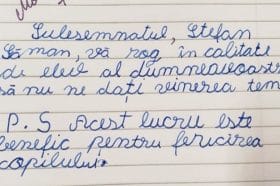 Subsemnatul, Ștefan
Găman, vă rog în calitate
de elev al dumneavoastr
să nu ne dați vinerea tem
P. S Acest lucru este
benefic pentru fericirea
copilului.